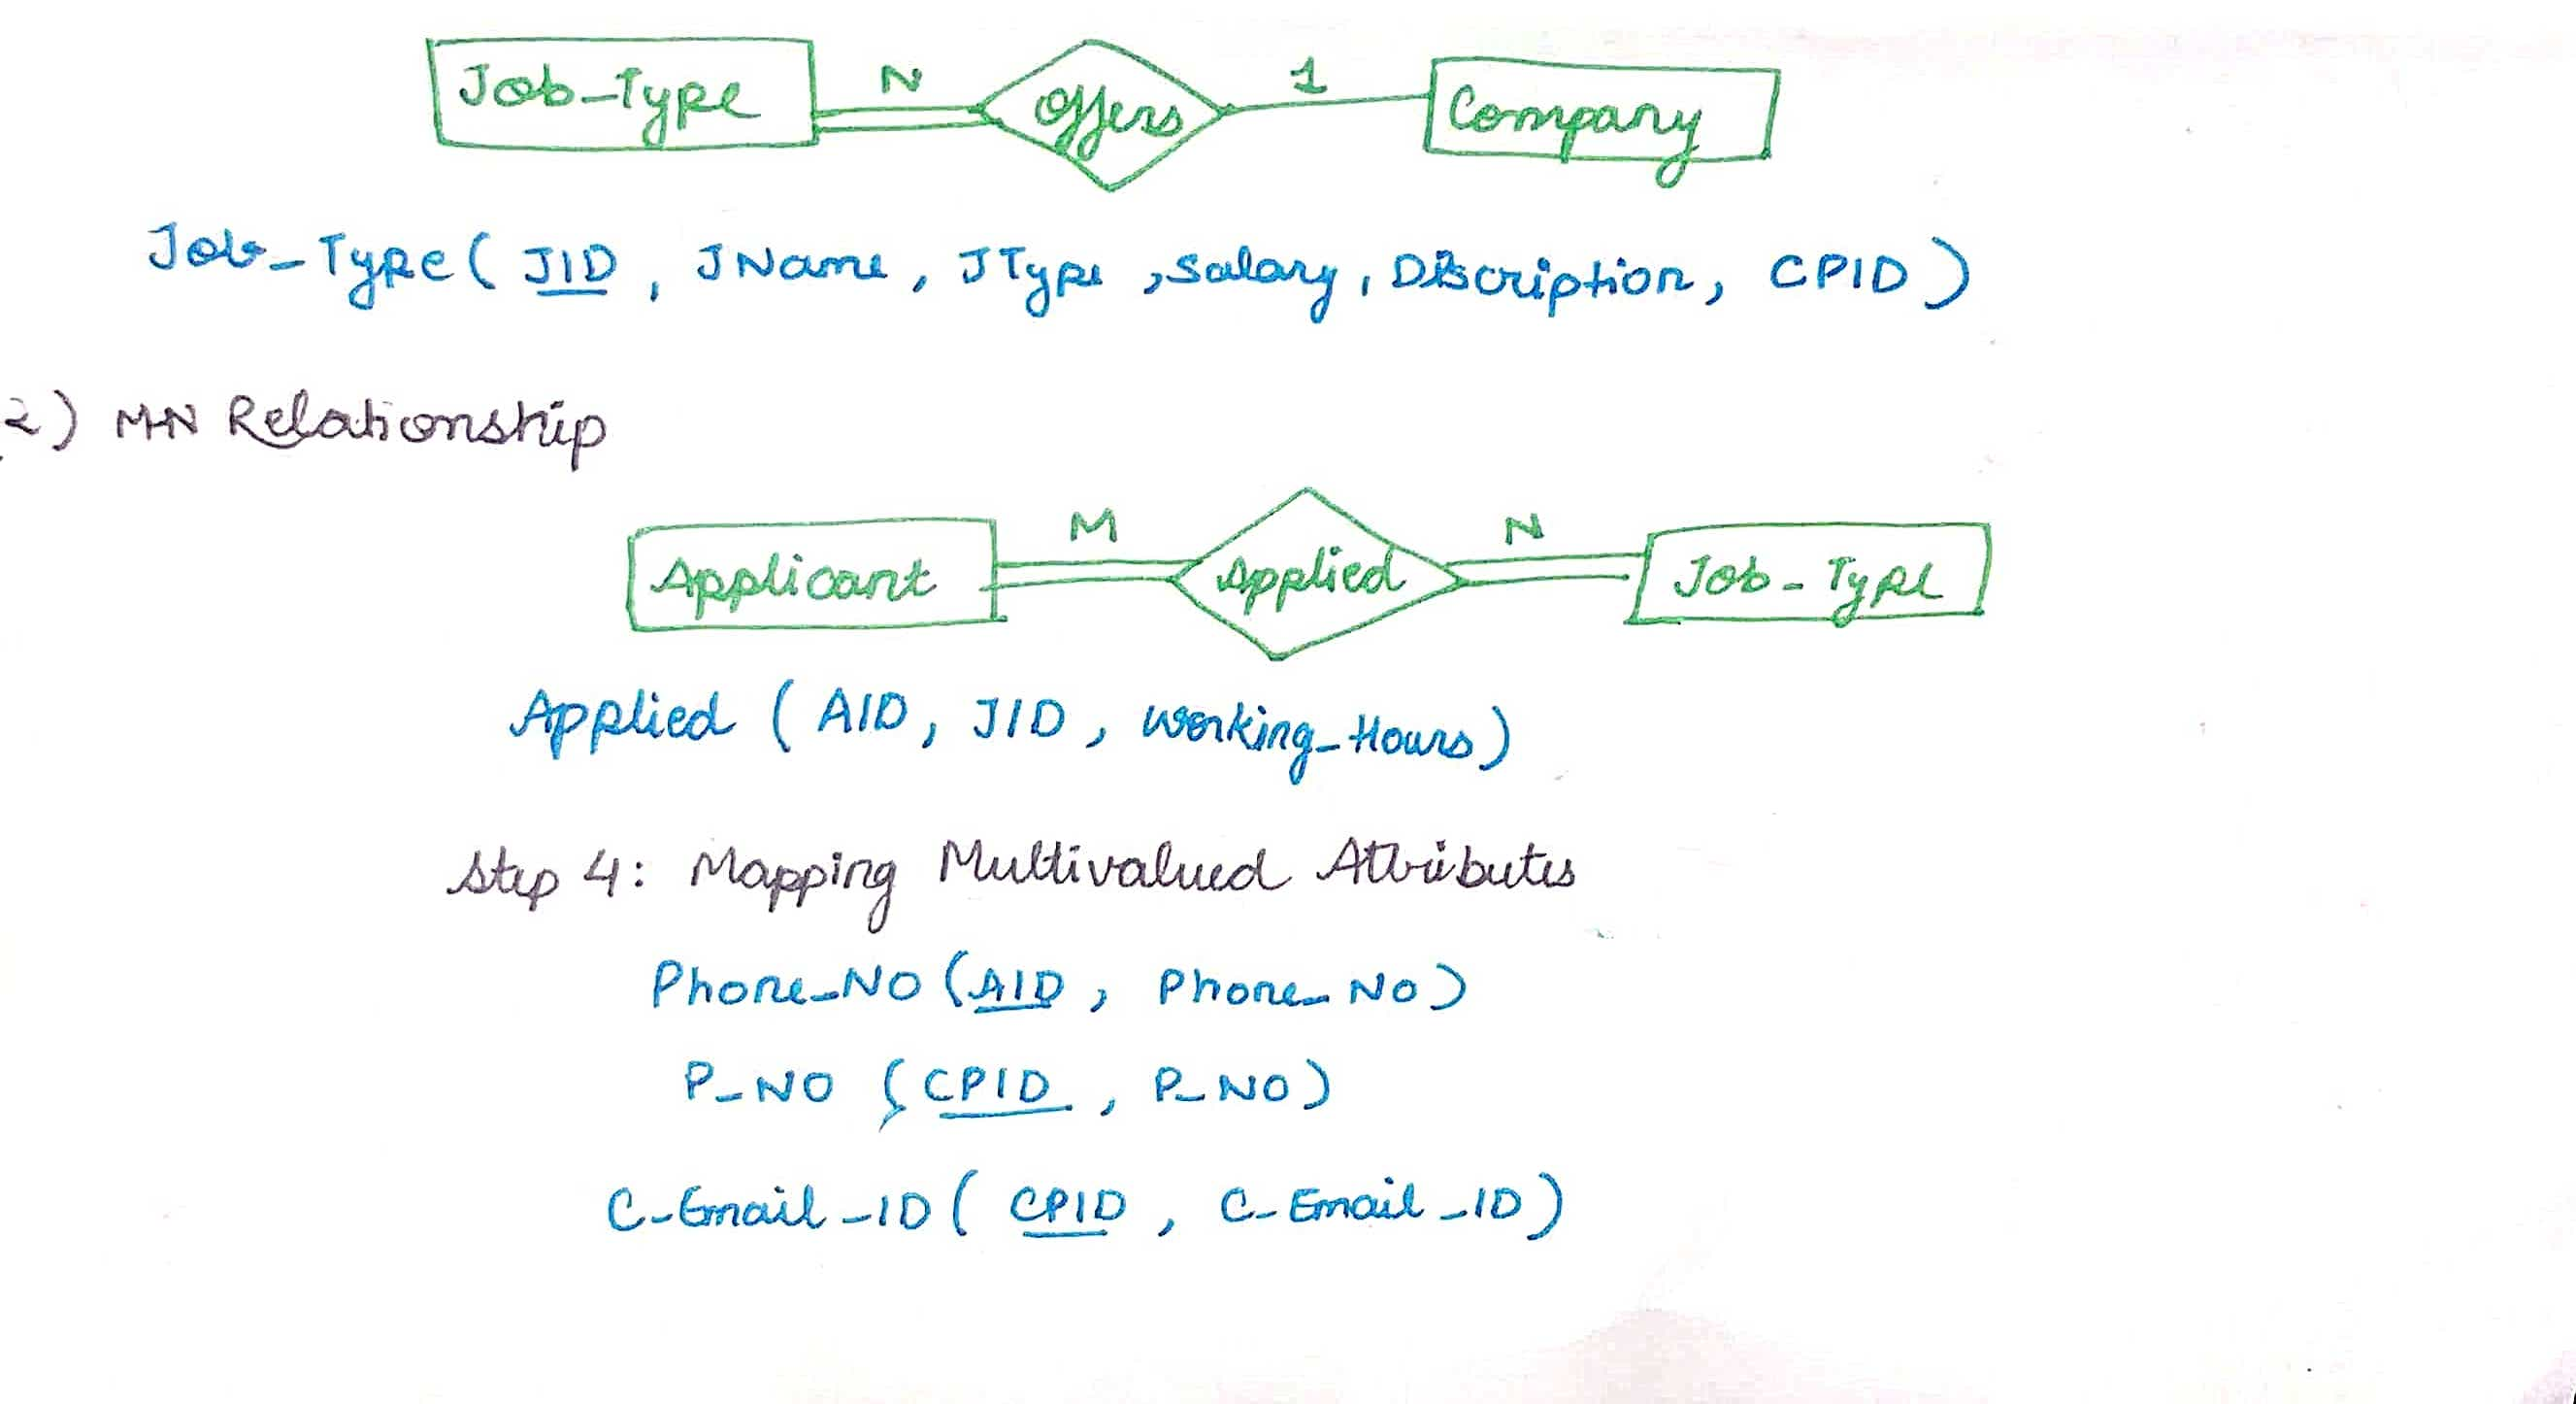 Job-Type N Offers 1 Company
Job-Type ( JID , JName , JType , Salary , Discription , CPID )
2) M-N Relationship
Applicant M Applied N Job-Type
Applied ( AID , JID , Working_Hours )
Step 4: Mapping Multivalued Attributes
Phone_NO ( AID , Phone_No )
P_NO ( CPID , P_NO )
C-Email_ID ( CPID , C-Email_ID )